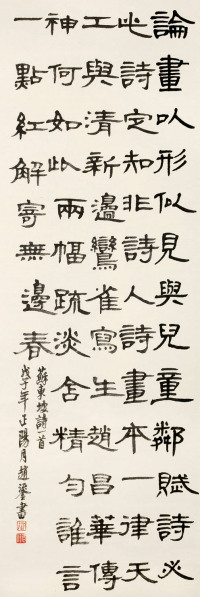 論畫以形似見與兒童鄰賦詩必
此詩定知非詩人詩畫本一律天
工與清新邊鸞雀寫生趙昌華傳
神何如此兩幅疏淡含精勻誰言
一點紅解寄無邊春
蘇東坡詩一首
戊子年正陽月趙書